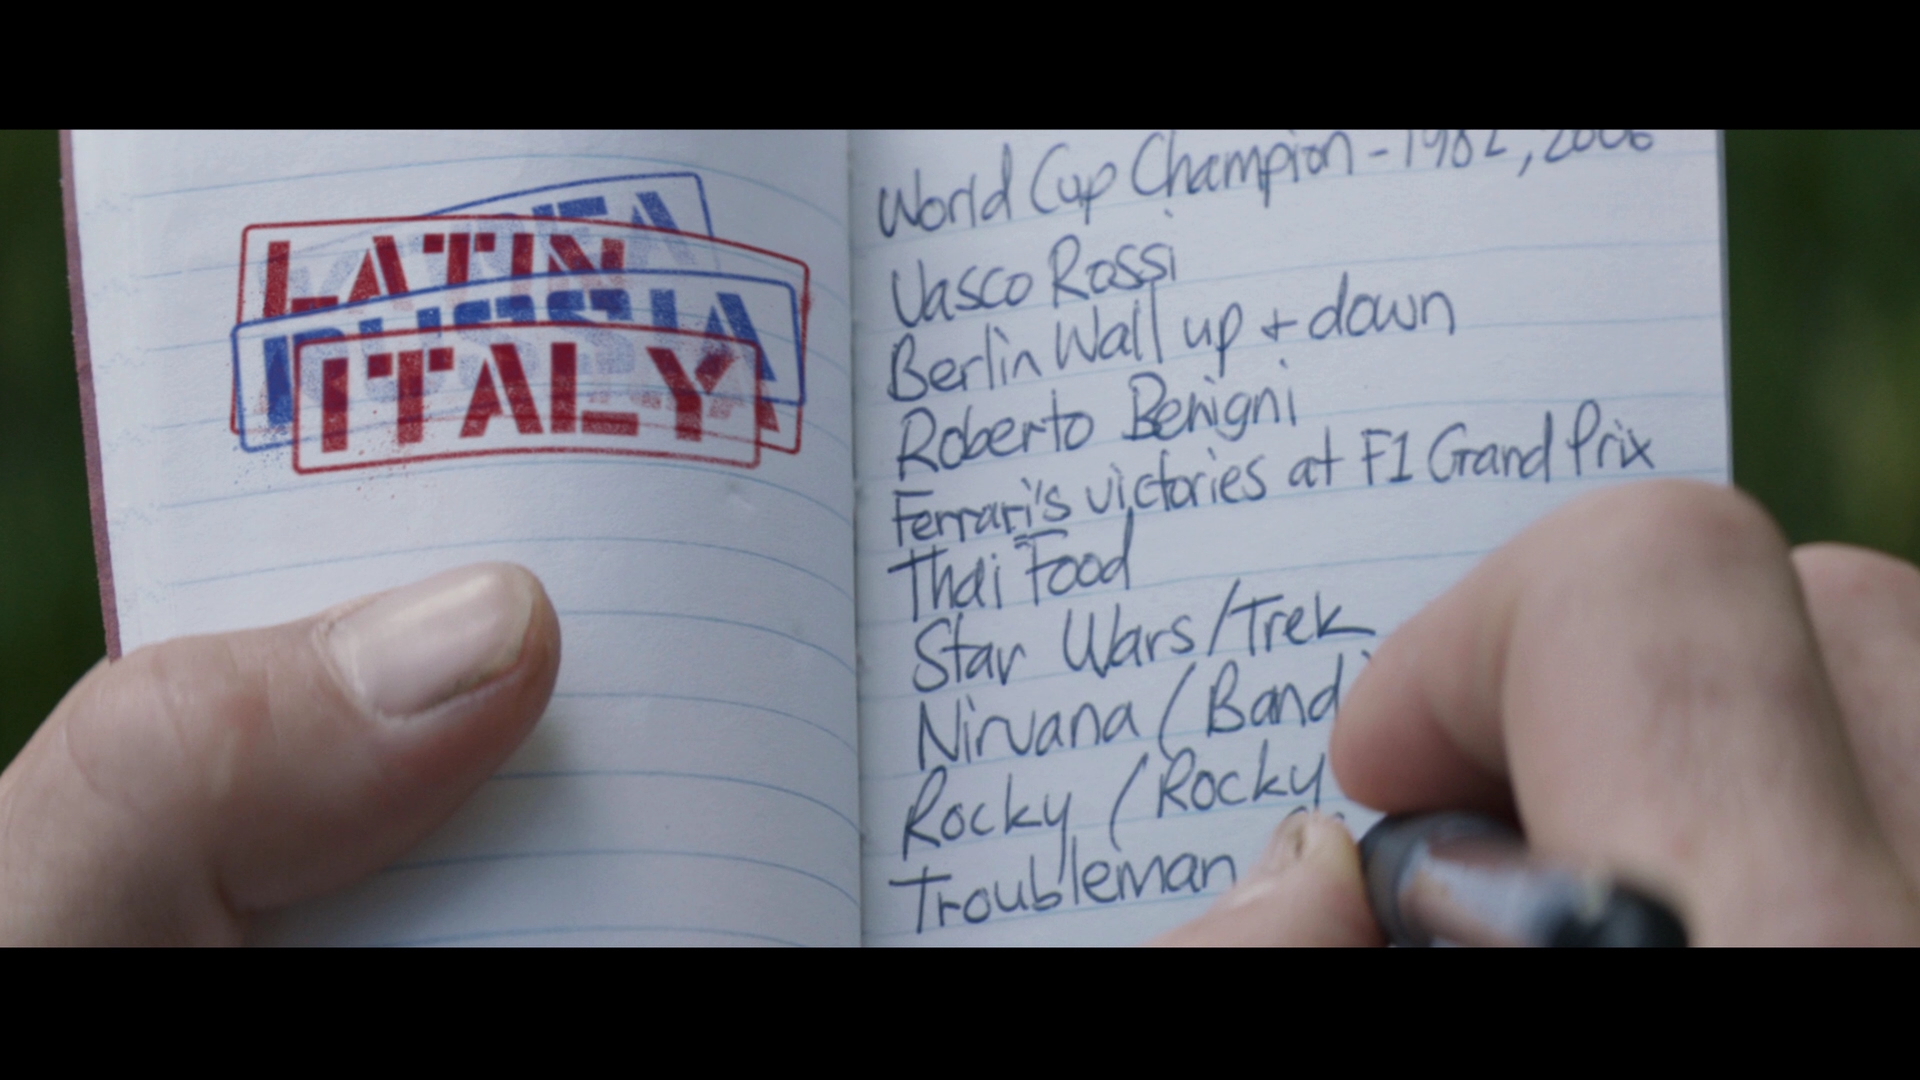 LATIN
RUSSIA
ITALY
World Cup Champion - 1982, 2006
Vasco Rossi
Berlin Wall up + down
Roberto Benigni
Ferrari's victories at F1 Grand Prix
Thai Food
Star Wars/Trek
Nirvana (Band)
Rocky (Rocky
Troubleman